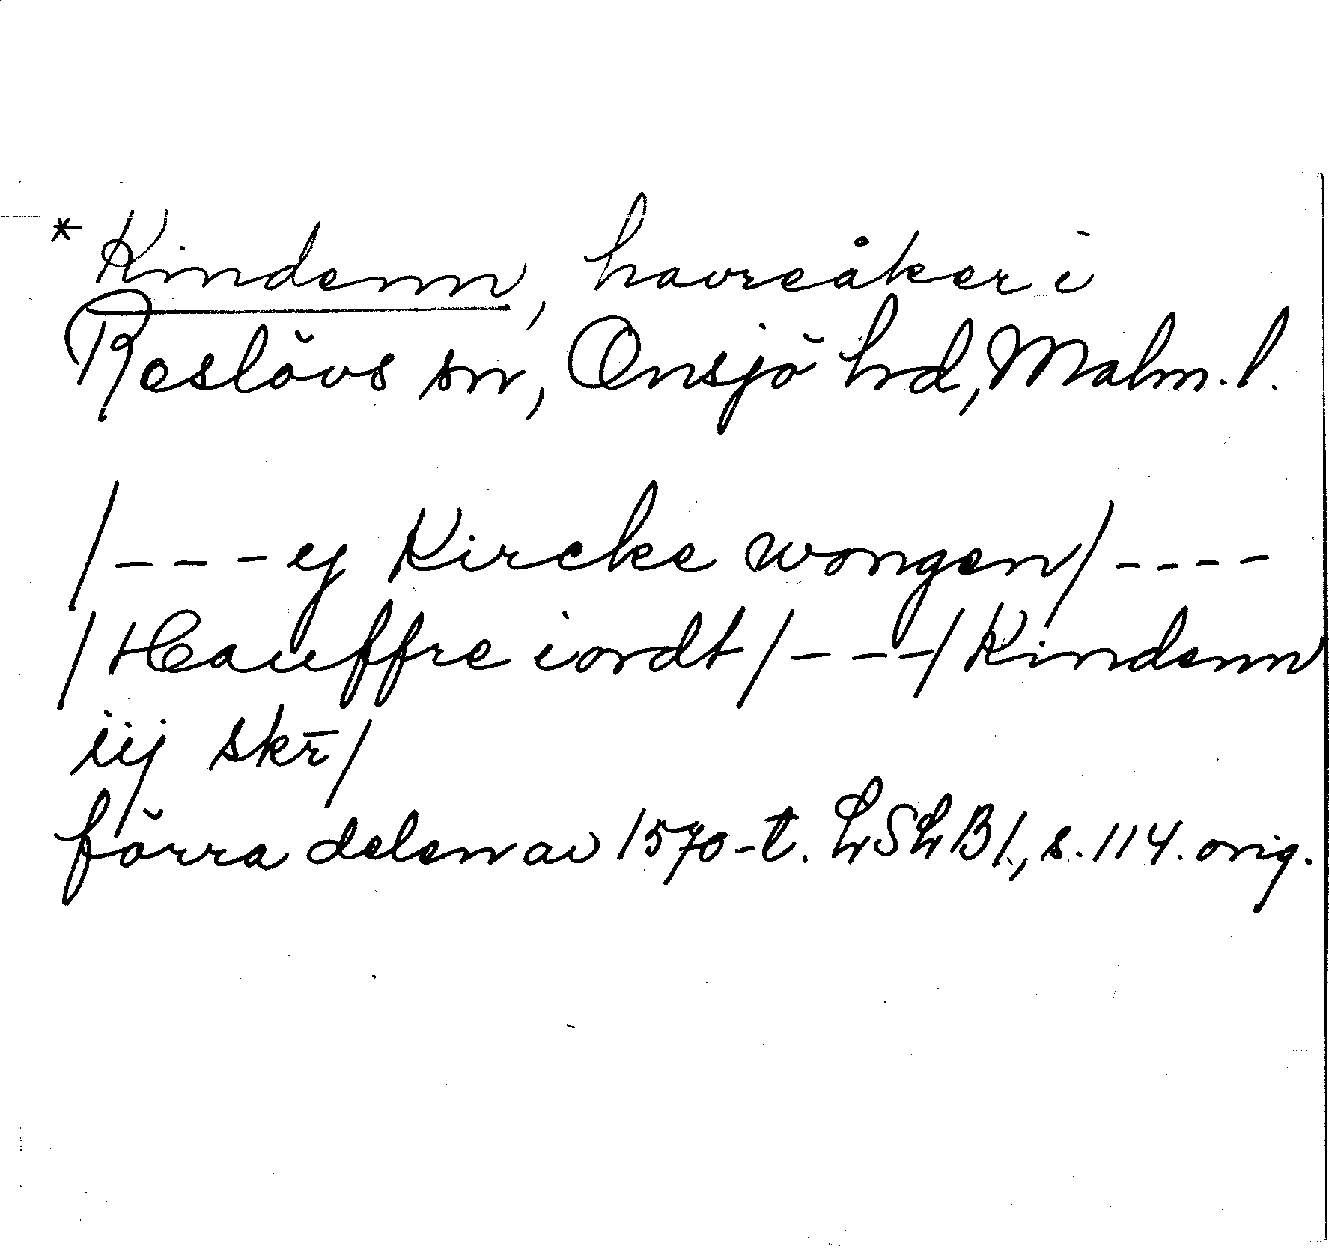 * Kindenn, havreåker i
Reslövs sn, Onsjö hd, Malm. l.
/---ej Kircke wongen/----
/Hauffre iordt/---/Kindenn
iij skr̄/
förra delen av 1570-t. LSLB1, s. 114. orig.